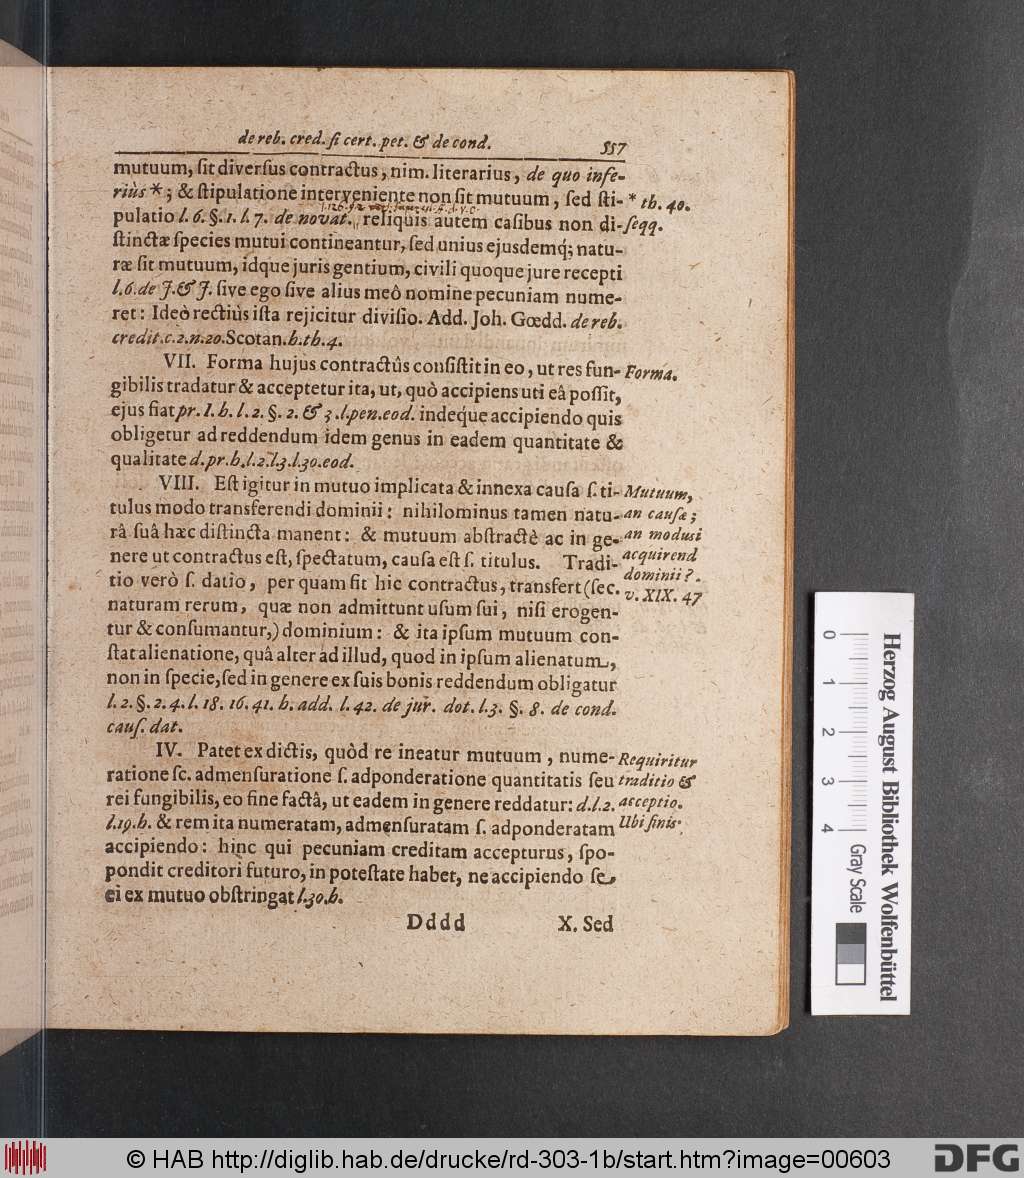 de reb. cred. ſi cert. pet. & de cond. 557
mutuum, ſit diverſus contractus, nim. literarius, de quo infe-
riùs *; & ſtipulatione interveniente non ſit mutuum, ſed ſti-
* th. 40.
pulatio l. 6. §. 1. l. 7. de novat. reliquis autem caſibus non di-
ſeqq.
ſtinctæ ſpecies mutui contineantur, ſed unius ejusdemq́; natu-
ræ ſit mutuum, idque juris gentium, civili quoque jure recepti
l. 6. de J. & J. ſive ego ſive alius meô nomine pecuniam nume-
ret: Ideò rectiùs iſta rejicitur diviſio. Add. Joh. Gœdd. de reb.
credit. c. 2. n. 20. Scotan. h. th. 4.
VII. Forma hujus contractûs conſiſtit in eo, ut res fun-
Forma.
gibilis tradatur & acceptetur ita, ut, quò accipiens uti eâ poſſit,
ejus fiat pr. l. h. l. 2. §. 2. & 3. l. pen. eod. indeq́ue accipiendo quis
obligetur ad reddendum idem genus in eadem quantitate &
qualitate d. pr. h. l. 2. l. 3. l. 30. eod.
VIII. Eſt igitur in mutuo implicata & innexa cauſa ſ. ti-
Mutuum,
tulus modo transferendi dominii: nihilominus tamen natu-
an cauſæ;
râ ſuâ hæc diſtincta manent: & mutuum abſtractè ac in ge-
an modusi
nere ut contractus eſt, ſpectatum, cauſa eſt ſ. titulus. Tradi-
acquirend
tio verò ſ. datio, per quam fit hic contractus, transfert (ſec.
dominii?.
naturam rerum, quæ non admittunt uſum ſui, niſi erogen-
v. XIX. 47
tur & conſumantur,) dominium: & ita ipſum mutuum con-
ſtat alienatione, quâ alter ad illud, quod in ipſum alienatum,
non in ſpecie, ſed in genere ex ſuis bonis reddendum obligatur
l. 2. §. 2. 4. l. 18. 16. 41. h. add. l. 42. de jur. dot. l. 3. §. 8. de cond.
cauſ. dat.
IV. Patet ex dictis, quòd re ineatur mutuum, nume-
Requiritur
ratione ſc. admenſuratione ſ. adponderatione quantitatis ſeu
traditio &
rei fungibilis, eo fine factâ, ut eadem in genere reddatur: d. l. 2.
acceptio.
l. 19. h. & rem ita numeratam, admenſuratam ſ. adponderatam
Ubi finis.
accipiendo: hinc qui pecuniam creditam accepturus, ſpo-
pondit creditori futuro, in poteſtate habet, ne accipiendo ſe
ei ex mutuo obſtringat l. 30. h.
Dddd X. Sed
Herzog August Bibliothek Wolfenbüttel
0 1 2 3 4
Gray Scale
© HAB http://diglib.hab.de/drucke/rd-303-1b/start.htm?image=00603
DFG